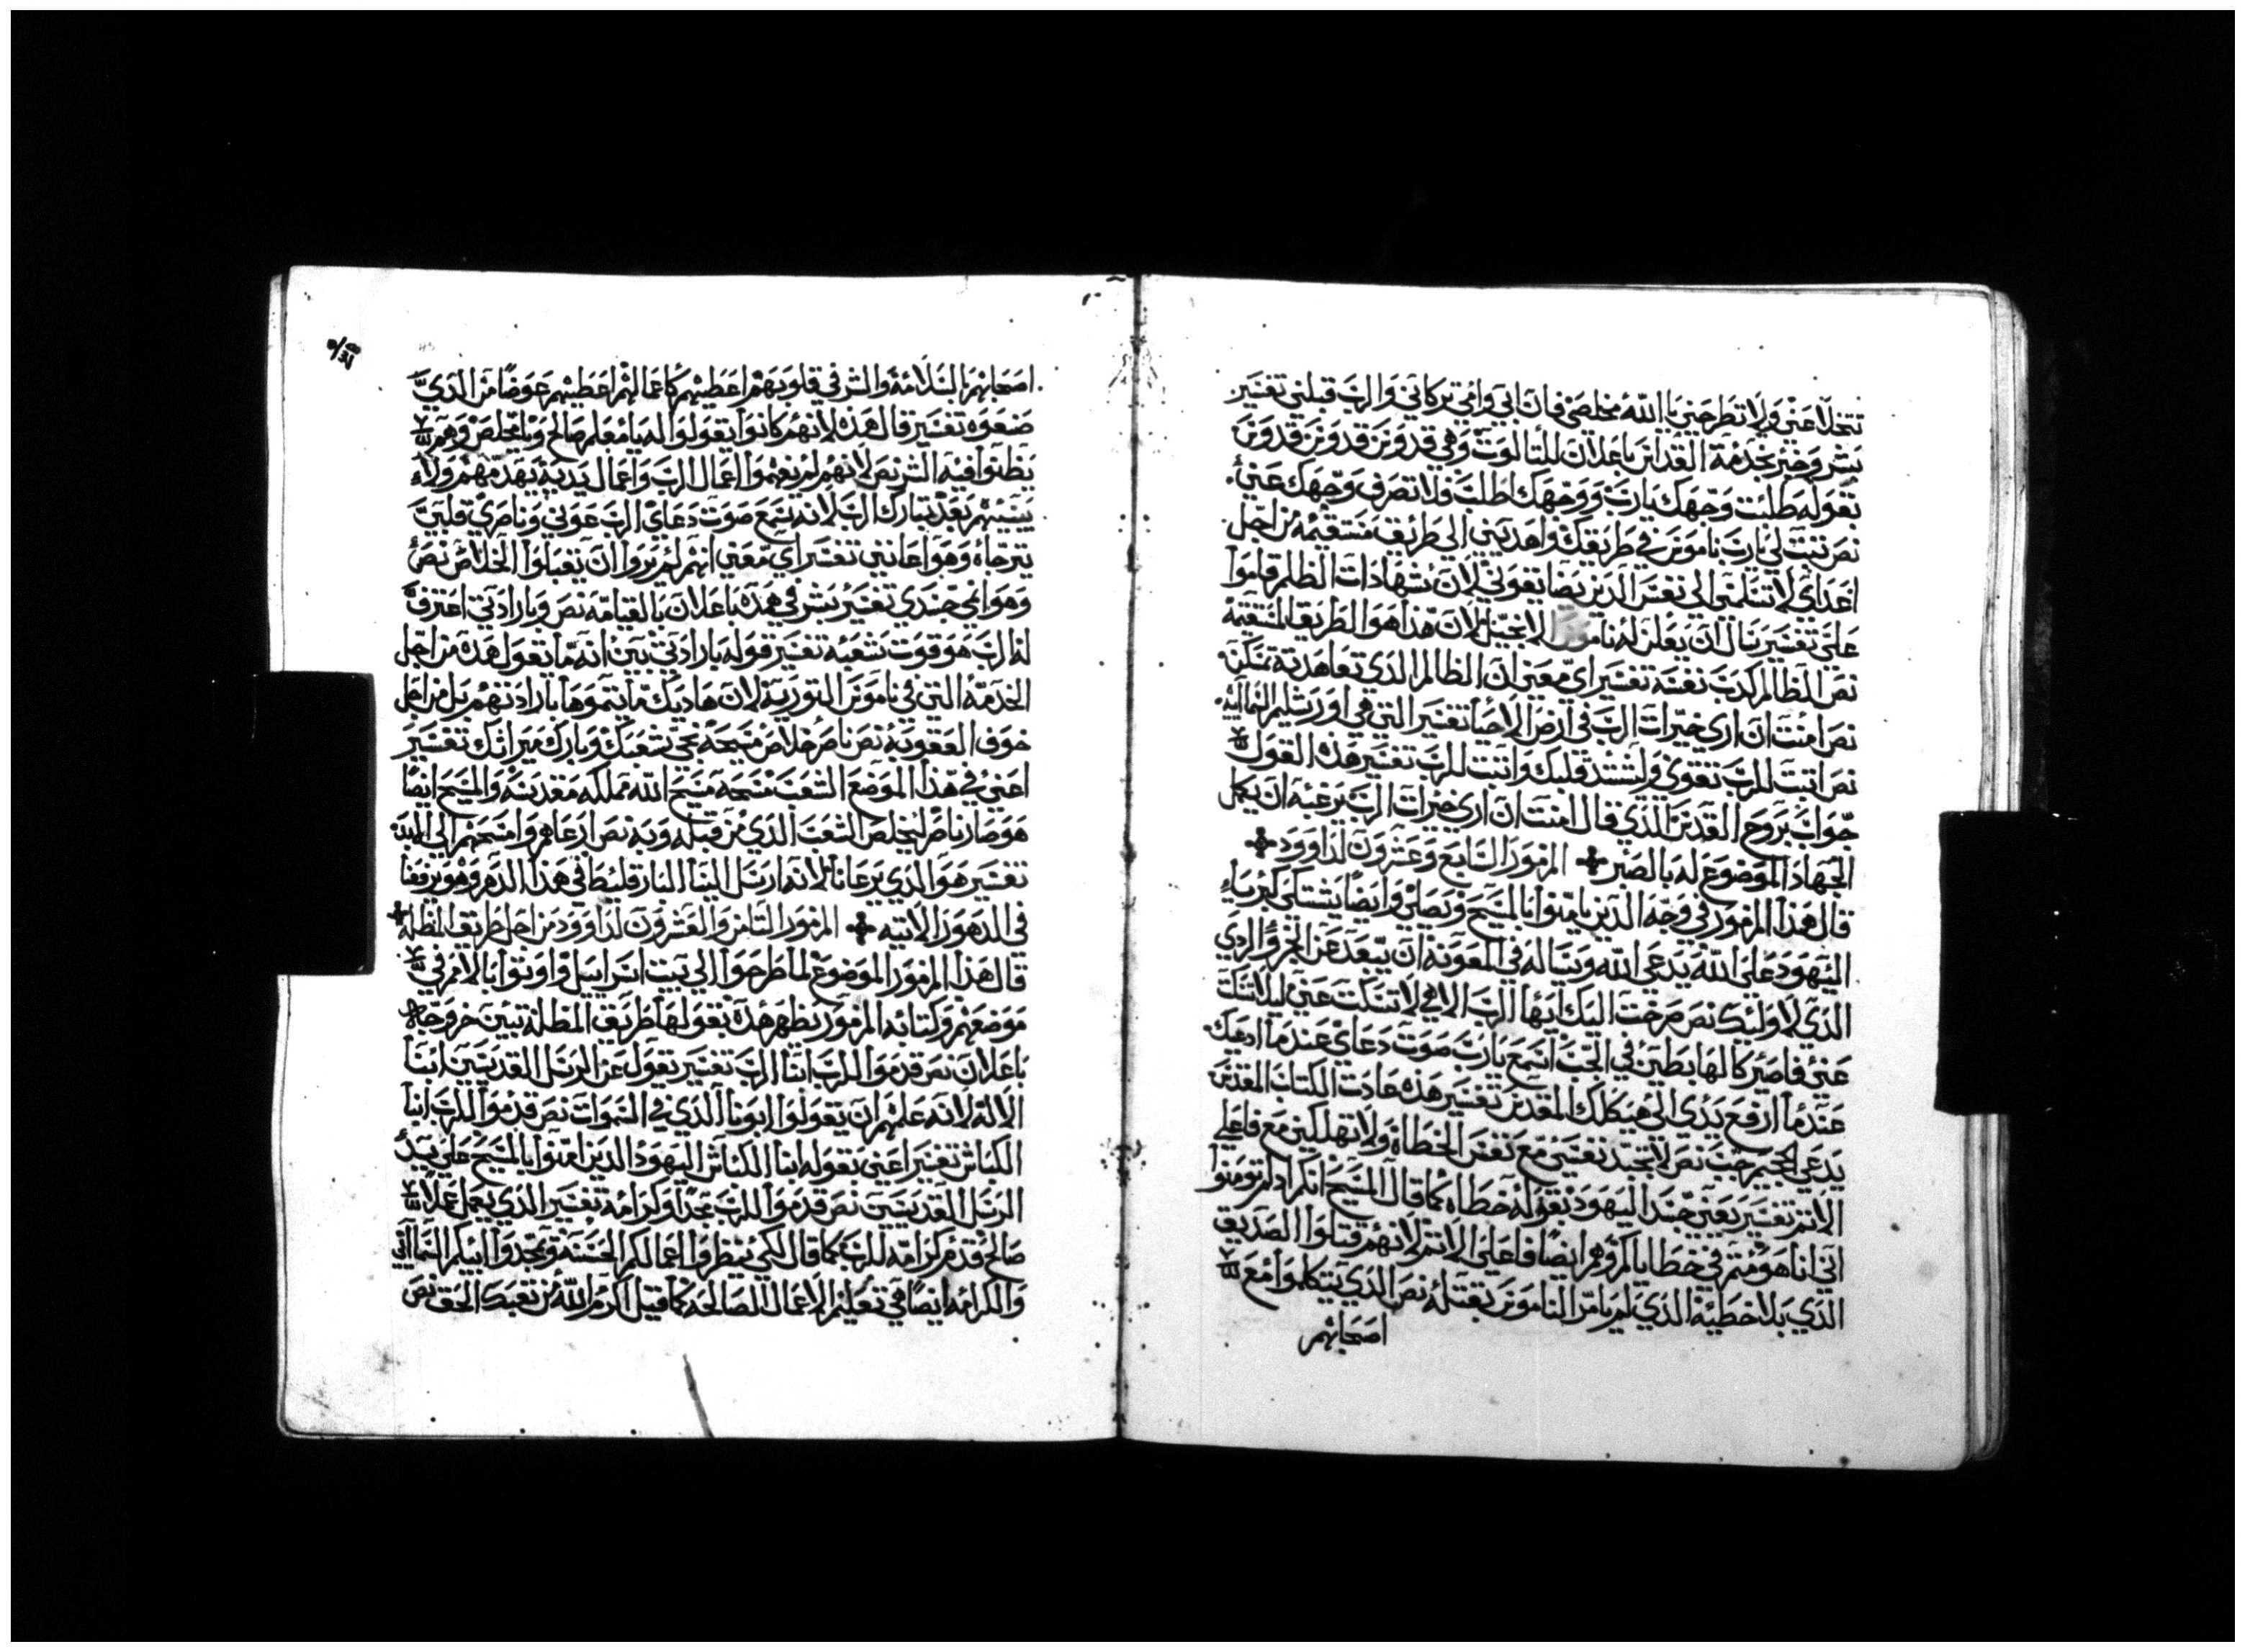 تتخلا عني ولا تطرحني يا الله مخلصي فان ابي وامي تركاني والرب قبلني تفسير
بشر وخبر بخدمة القداس باعلان للثالوث وهي قدوس قدوس قدوس
بقوله طلبت وجهك يارب ووجهك اطلب فلا تصرف وجهك عني
نص تبت لي يارب ناموس في طريقك واهديني الى طريق مستقيمه من اجل
اعداي لا تسلمني الى نفس الذين يضايقوني لان شهادات الظلم قاموا
علي تفسير يسال ان يعلن له ناموس الانجيل لان هذا هو الطريق المستقيمة
نص الظالم كذب نفسه تفسير اي معني ان الظالم الذي تعاهد به تمسكن
نص امنت ان اري خيرات الرب في ارض الاحيا تفسير التي هي اورشليم السماييه
نص اتبت للرب تقوي وليشتد قلبك واتبت للرب تفسير هذه القول
جواب بروح القدس للذي قال امنت ان اري خيرات الرب برغبه ان يكمل
الجهاد الموضوع له بالصبر المزمور السابع وعشرون لداوود
قال هذا المزمور في وجه الذين يامنوا بالمسيح ويصلي وايضا يشتكي كبرياء
اليهود علي الله يدعي الله ويساله في المعونه ان يبعد عن الجزو الردي
الذي لاوليك نص صرخت اليك ايها الرب الاهي لا تسكت عني ليلا تسكت
عني فاصير كالهابطين في الجب اسمع يارب صوت دعاي عندما ادعيك
عندما ارفع يدي الي هيكلك المقدس تفسير هذه عادت الكتاب المقدس
يدعي الجحيم جب نص لا تجبد نفسي مع نفس الخطاة ولا تهلكني مع فاعلي
الاتم تفسير يعني جسد اليهود بقوله خطاه كما قال المسيح انكم اذ لم تومنوا
اني انا هو متم في خطاياكم وهم ايضا فاعلي الاتم لانهم قتلوا الصديق
الذي بلا خطيئة الذي لم يامر الناموس بقتله نص الذي يتكلموا مع
اصحابهم
اصحابهم بالسلامة والشر في قلوبهم اعطيهم كاعمالهم اعطيهم عوضا من الذي
صنعوه تفسير قال هذه لانهم كانوا يقولوا له يا معلم صالح ويا مخلص وهم
يظنوا فيه الشر نص لانهم لم يفهموا اعمال الرب واعمال يديه تهدمهم ولا
يبنيهم بعد تبارك الرب لانه سمع صوت دعاي الرب عوني وناصري قلبي
يترجاه وهو اعانني تفسير اي معني انهم لم يروا ان يقبلوا الخلاص نص
وهو انمي جسدي تفسير بشر في هذه باعلان بالقيامه نص وبارادتي اعترف
له الرب هو قوت شعبه تفسير قوله بارادتي بين انه ما يقول هذه من اجل
الخدمة التي في ناموس التورية لان هاديك ما يتموها بارادتهم بل من اجل
خوف العقوبة نص ناصر خلاص مسيحه نجي شعبك وبارك ميراتك تفسير
اعني في هذا الموضع الشعب مسحه مسيح الله مملكه مقدسه والمسيح ايضا
هو صار ناصر ليخلص الشعب الذي من قبله وبه نص ارعاهم وامسحهم الى الابد
تفسير هو الذي يرعانا لانه ارسل الينا البارقليط في هذا الدهر وهو يرفعنا
في الدهور الاتيه المزمور التامن والعشرون لداوود من اجل طريق المظله
قال هذا المزمور الموضوع لما طرحوا الي بيت اسراييل واوتوا بالامر في
موضعهم وكتابه المزمور يظهر هذه بقولها طريق المظلة تبين خروجها
باعلان نص قدموا للرب ابنا الرب تفسير يقول عن الرسل القديسين ابنا
الاله لانه علمهم ان يقولوا ابونا الذي في السموات نص قدموا للرب ابنا
الكباش تفسير اعني بقوله ابنا الكباش اليهود الذين امنوا بالمسيح علي يد
الرسل القديسين نص قدموا للرب مجدا وكرامه تفسير الذي يعمل عملا
صالح قدم كرامه للرب كما قال لكي ينظروا اعمالكم الحسنة ويمجدوا ابيكم السماايي
والكرامه ايضا هي تعليم الاعمال الصالحه كما قيل اكرم الله من تعبك الحق نص